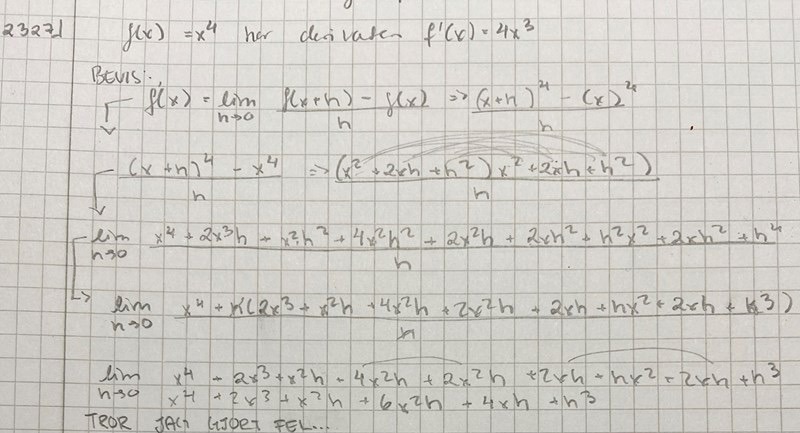 2327] f(x) = x⁴ har derivatan f'(x) = 4x³
BEVIS:
f(x) = lim h→0 f(x+h) - f(x) / h => (x+h)⁴ - (x)⁴ / h
(x+h)⁴ - x⁴ / h => (x² + 2xh + h²) x² + 2xh + h²) / h
lim h→0 x⁴ + 2x³h + x²h² + 4x²h² + 2x²h + 2xh² + h²x² + 2xh² + h⁴ / h
lim h→0 x⁴ + h(2x³ + x²h + 4x²h + 2x²h + 2xh + hx² + 2xh + h³) / h
lim h→0 x⁴ + 2x³ + x²h + 4x²h + 2x²h + 2xh + hx² + 2xh + h³
x⁴ + 2x³ + x²h + 6x²h + 4xh + h³
TROR JAG GJORT FEL...